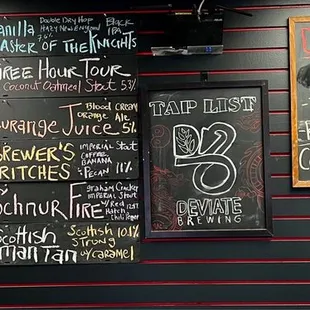 Vanilla
Double Dry Hop
Hazy New England
Black
IPA
Master of the Knights
Three Hour Tour
Coconut Oatmeal Stout 5.3%
Blood Cream
Orange Ale
Juice 5%
Brewer's
Britches
Imperial Stout
Coffee
Banana
Pecan 11%
Fire
Graham Cracker
Imperial Stout
w/ Red
Hatch
Chili Pepper
Scottish
Tan
Scottish 10.1%
Strong
w/ Caramel
TAP LIST
DEVIATE
BREWING